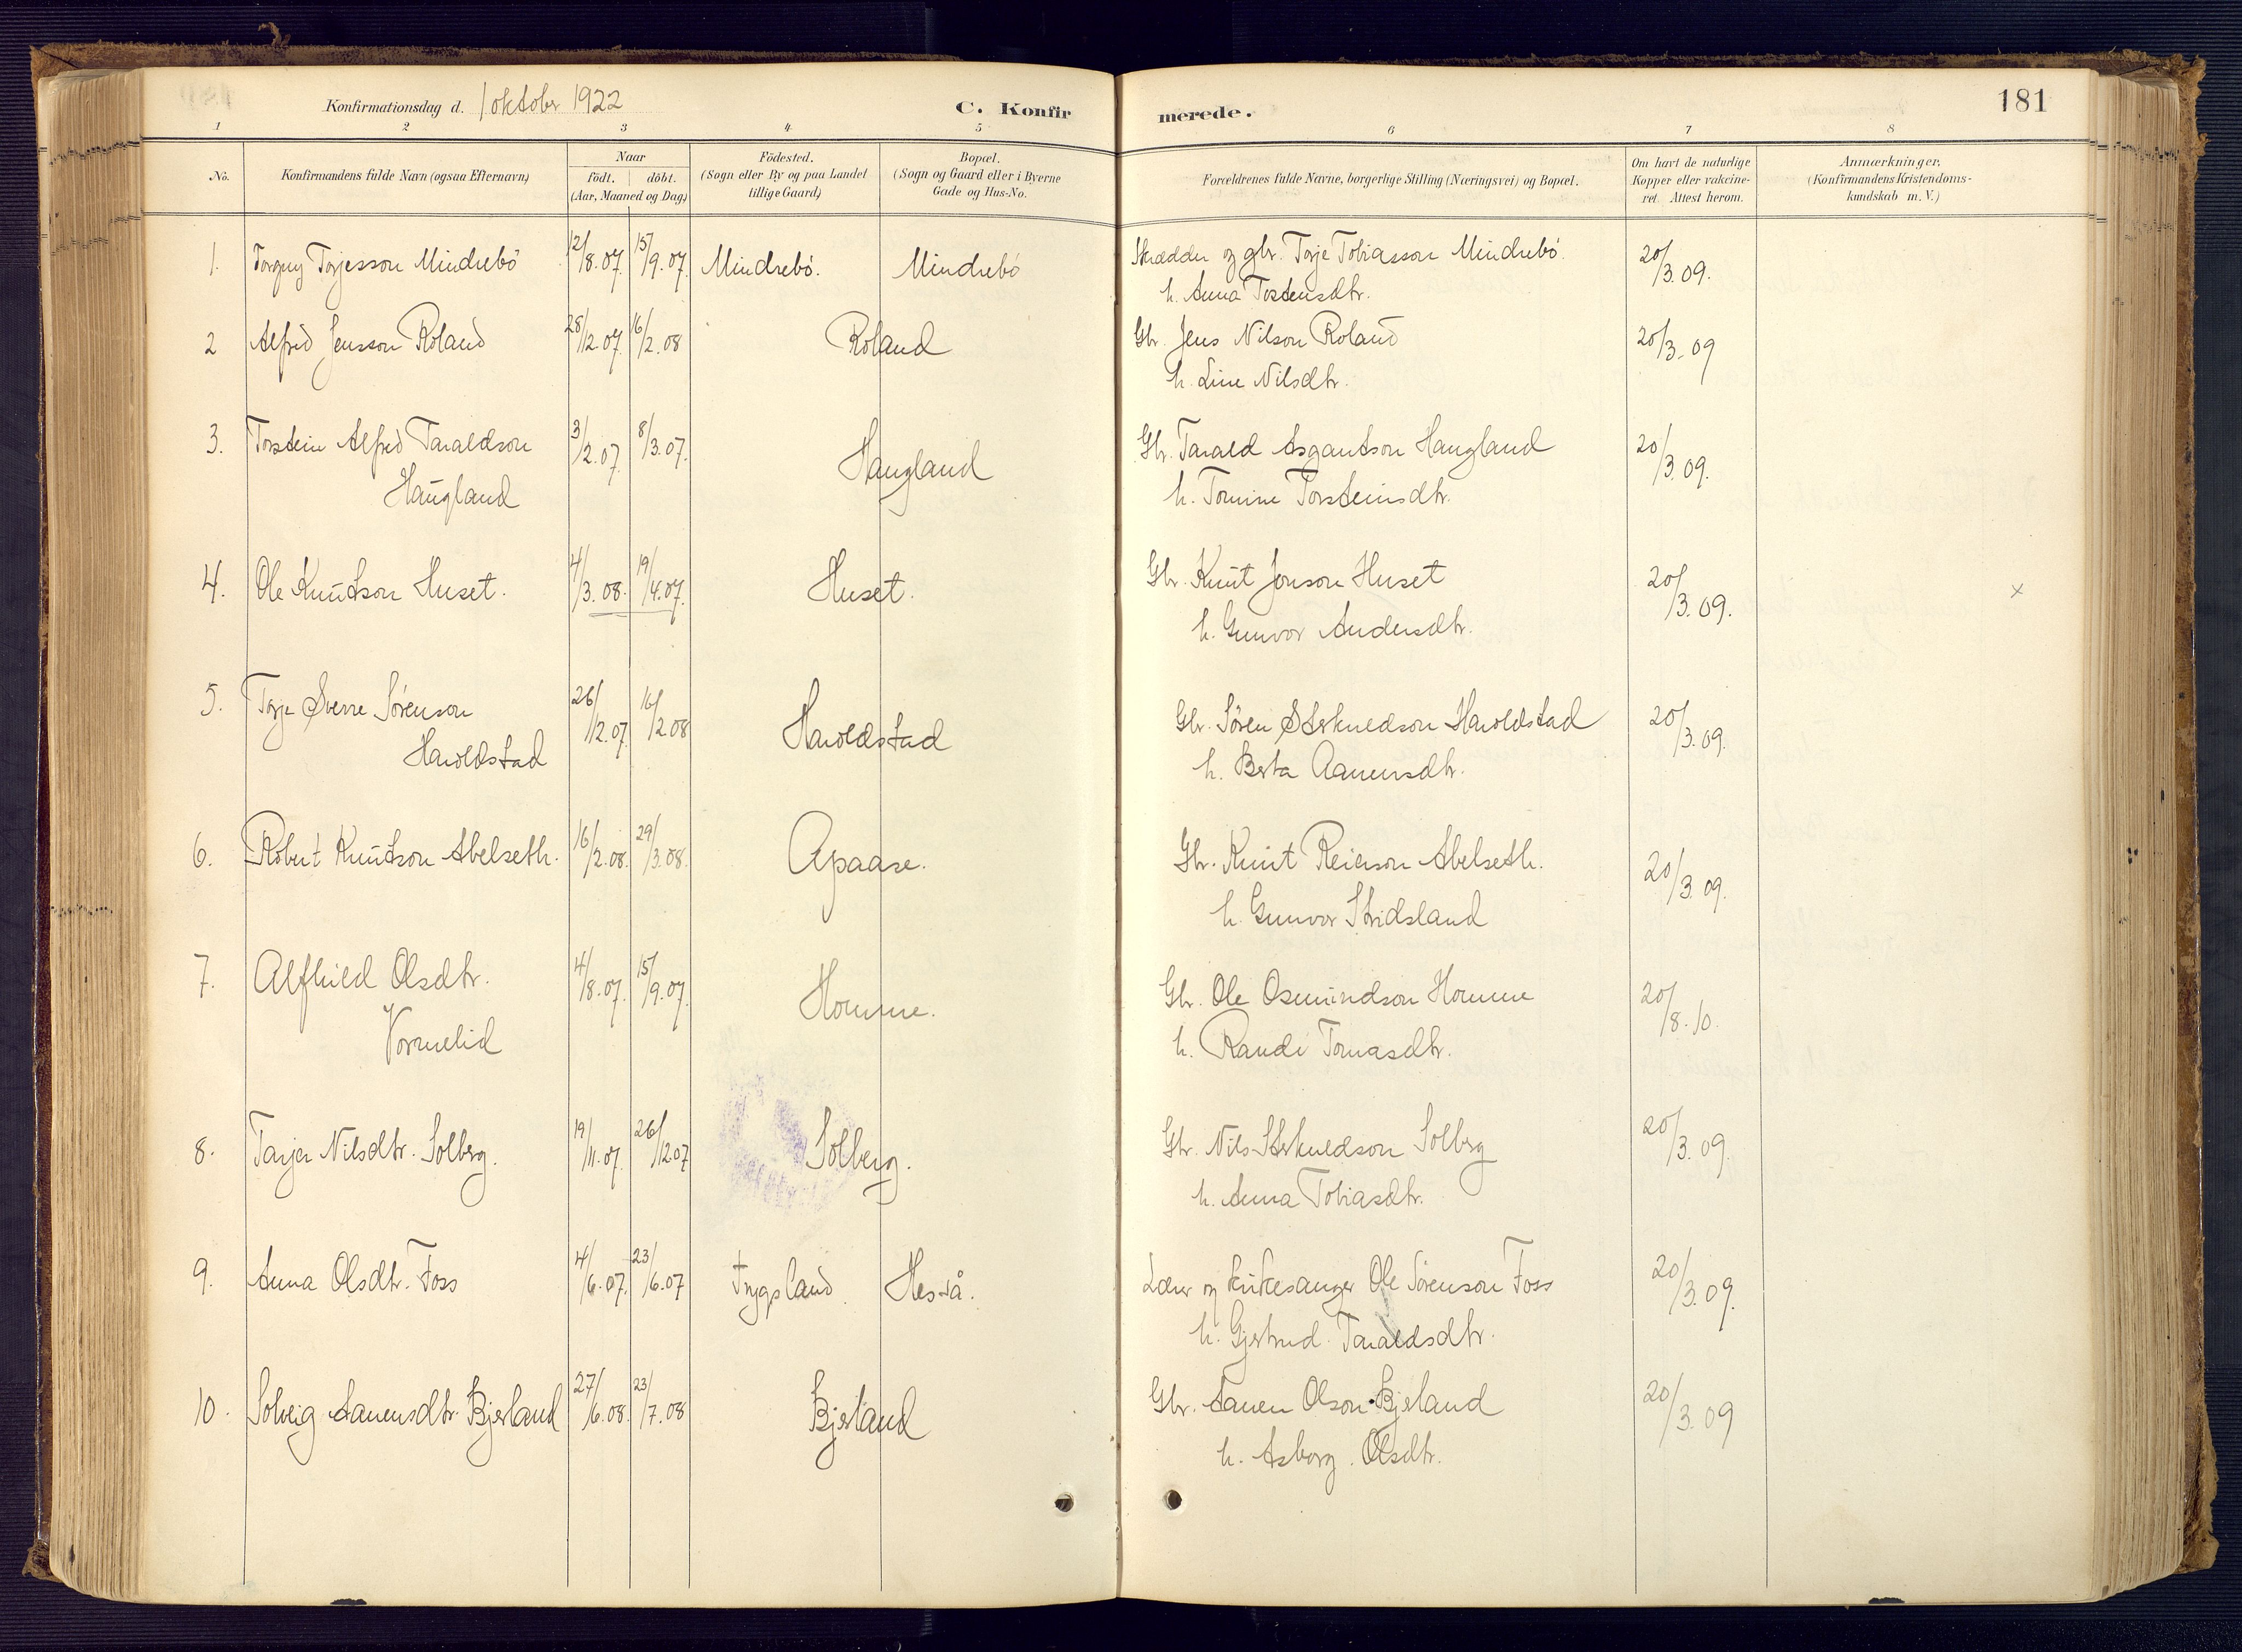 Konfirmationsdag d. 1 oktober 1922
C. Konfirmerede.
181
1 2 3 4 5 6 7 8
No.
Konfirmandens fulde Navn (ogsaa Efternavn)
Naar
födt. döbt.
(Aar, Maaned og Dag)
Födested.
(Sogn eller By og paa Landet
tillige Gaard)
Bopæl.
(Sogn og Gaard eller i Byerne
Gade og Hus-No.
Forældrenes fulde Navne, borgerlige Stilling (Næringsvei) og Bopæl.
Om havt de naturlige
Kopper eller vakcine-
ret. Attest herom.
Anmærkninger.
(Konfirmandens Kristendoms-
kundskab m. V.)
1. Torguy Torjesson Mindrebö 12/8.07. 15/9.07. Mindrebö. Mindrebö Skrædder og gbr. Torje Tobiasson Mindrebö. 20/3.09.
h. Anna Tostensdtr.
2 Alfred Jensson Roland 28/12.07. 16/2.08 Roland Gbr. Jens Nilson Roland 20/3.09
h. Line Nilsdtr.
3. Torstein Alfred Taraldson 3/2.07. 8/3.07. Haugland Gbr. Tarald Asgautson Haugland 20/3.09.
Haugland h. Tomine Torsteinsdtr.
4. Ole Knutson Huset. 4/3.08. 19/4.07. Huset. Gbr. Knut Jonson Huset 20/3.09. x
h. Gunvor Andersdtr.
5. Torje Sverre Sörenson 26/12.07. 16/2.08 Haroldstad Gbr. Sören Sterkuldson Haroldstad 20/3.09.
Haroldstad h. Berta Aanensdtr.
6. Robert Knutson Abelseth. 16/2.08. 29/3.08. Apaase. Gbr. Knut Reierson Abelseth. 20/3.09.
h. Gunvor Stridsland
7. Alfhild Olsdtr. 4/8.07. 15/9.07. Homme. Gbr. Ole Osmundson Homme 20/8.10.
Vormelid h. Randi Tomasdtr.
8. Tarjer Nilsdtr. Solberg. 19/11.07. 26/12.07 Solberg. Gbr. Nils Sterkuldson Solberg 20/3.09.
h. Anna Tobiasdtr.
9. Anna Olsdtr. Foss 4/6.07. 23/6.07 Trygsland. Heså. Lærer og kirkesanger Ole Sörenson Foss 20/3.09.
h. Gjertrud Taraldsdtr.
10. Solveig Aanensdtr. Bjerland 27/6.08. 23/7.08 Bjerland Gbr. Aanen Olson Bjerland 20/3.09
h. Asborg Olsdtr.